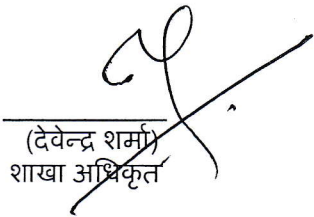 (देवेन्द्र शर्मा)
शाखा अधिकृत